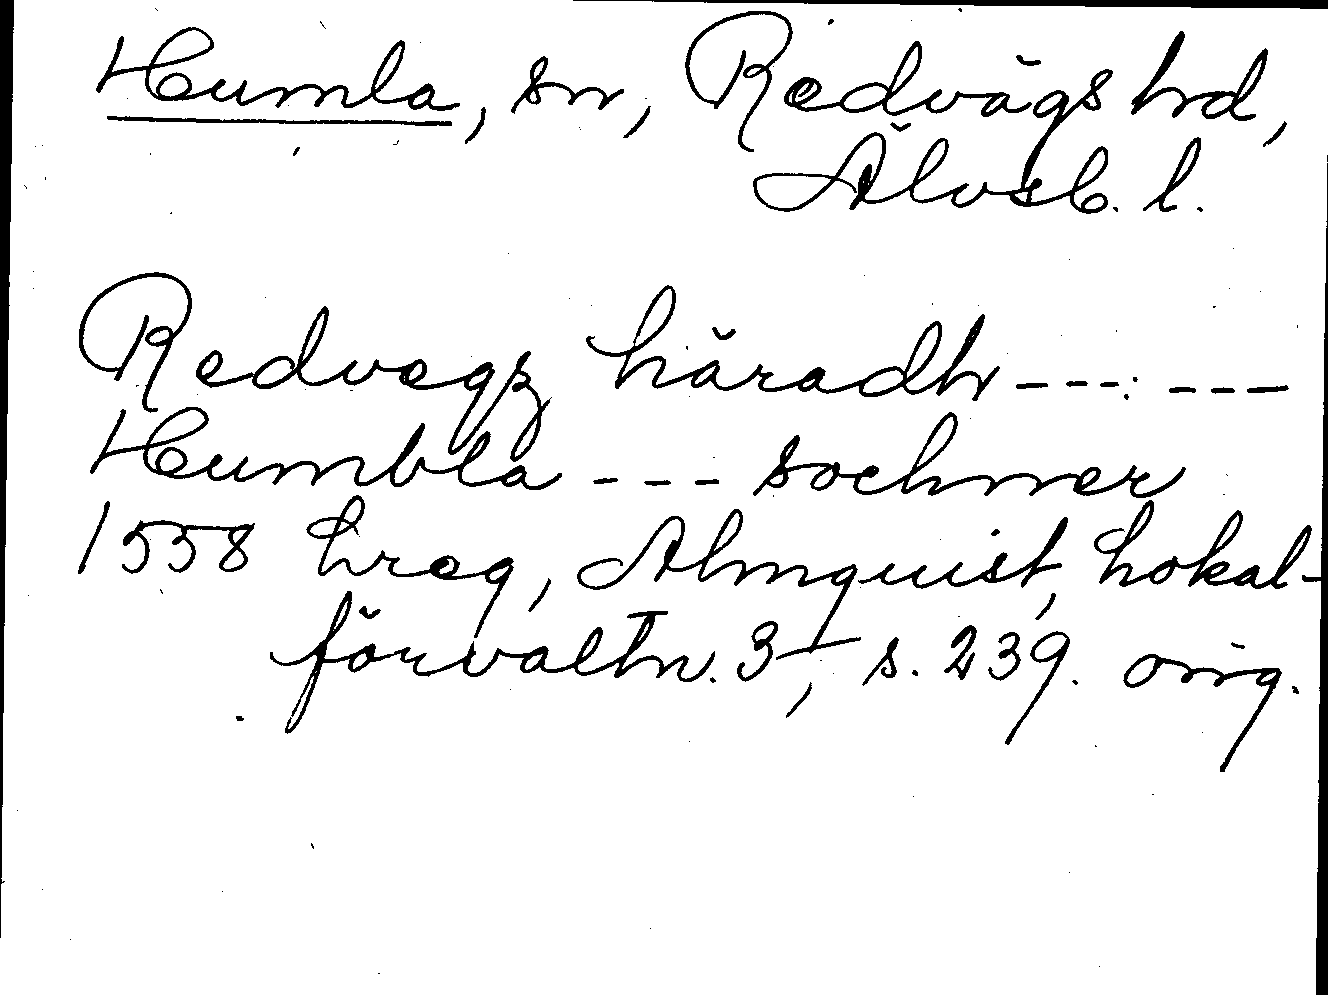 Humla, sn, Redvägs hd,
Älvsb. l.
Redvegz häradh ---: ---
Humbla --- sochner
1558 hreg, Almquist, Lokal-
förvaltn. 3, s. 239. orig.